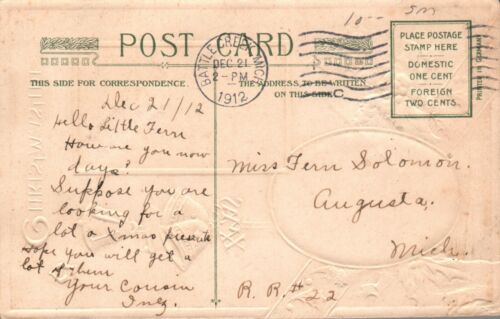 10--- 5m
POST CARD
THIS SIDE FOR CORRESPONDENCE.
THE ADDRESS TO BE WRITTEN
ON THIS SIDE.
BATTLE CREEK, MICH.
DEC 21
2-PM
1912
C
PLACE POSTAGE
STAMP HERE
DOMESTIC
ONE CENT
FOREIGN
TWO CENTS.
PRINTED IN GERMANY
Dec 21/12
Hello Little Fern
How are you now
days?
Suppose you are
looking for a
lot a Xmas presents
hope you will get a
lot of them
Your Cousin
Inez.
Miss Fern Solomon.
Augusta.
Mich.
R. R. # 22